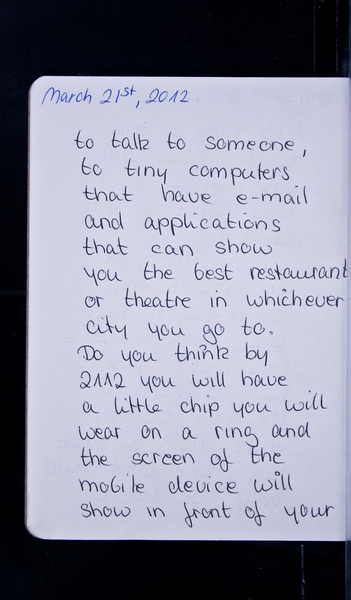 March 21st, 2012
to talk to someone,
to tiny computers
that have e-mail
and applications
that can show
you the best restaurant
or theatre in whichever
city you go to.
Do you think by
2112 you will have
a little chip you will
wear on a ring and
the screen of the
mobile device will
show in front of your